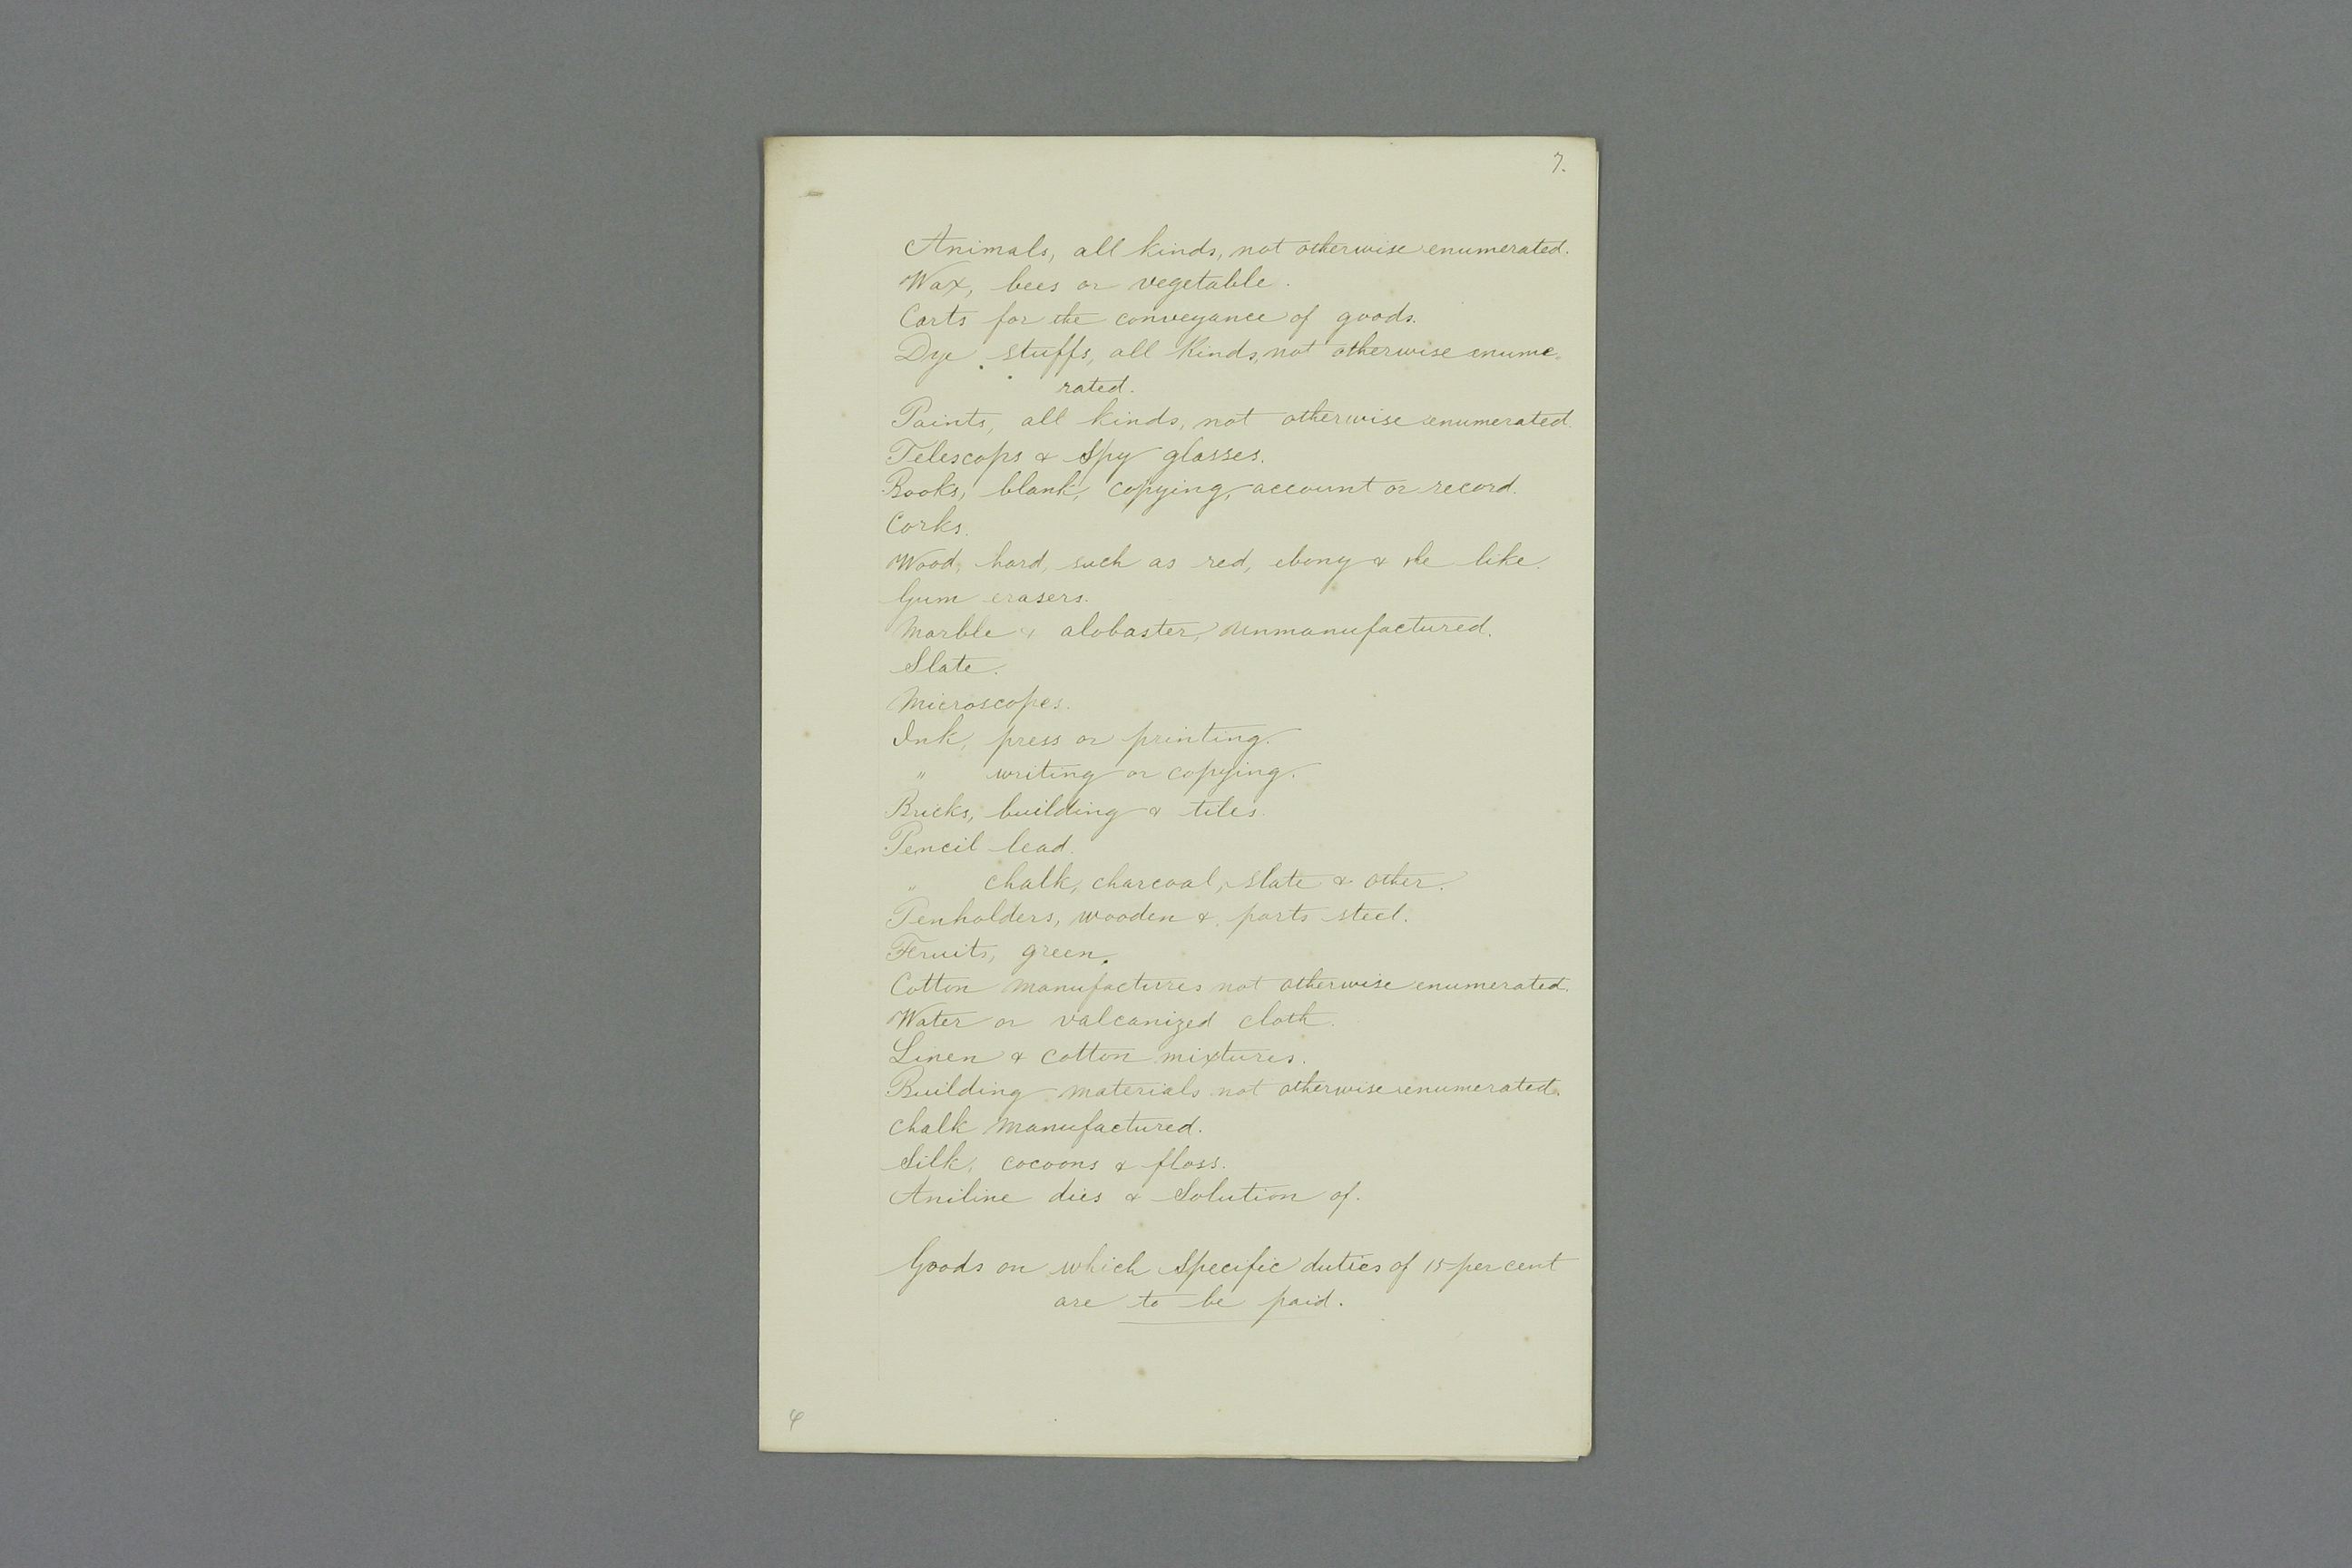 7.
Animals, all kinds, not otherwise enumerated.
Wax, bees or vegetable.
Carts for the conveyance of goods.
Dye stuffs, all kinds, not otherwise enume-
rated.
Paints, all kinds, not otherwise enumerated.
Telescops & Spy glasses.
Books, blank, copying, account or record.
Corks.
Wood, hard, such as red, ebony & the like.
Gum erasers.
Marble & alobaster, unmanufactured.
Slate.
Microscopes.
Ink, press or printing.
" writing or copying.
Bricks, building & tiles.
Pencil lead.
" chalk, charcoal, slate & other.
Penholders, wooden & parts steel.
Fruits, green.
Cotton manufactures not otherwise enumerated.
Water or valcanized cloth.
Linen & cotton mixtures.
Building materials not otherwise enumerated.
Chalk manufactured.
Silk, cocoons & floss.
Aniline dies & Solution of.
Goods on which Specific duties of 15 per cent
are to be paid.